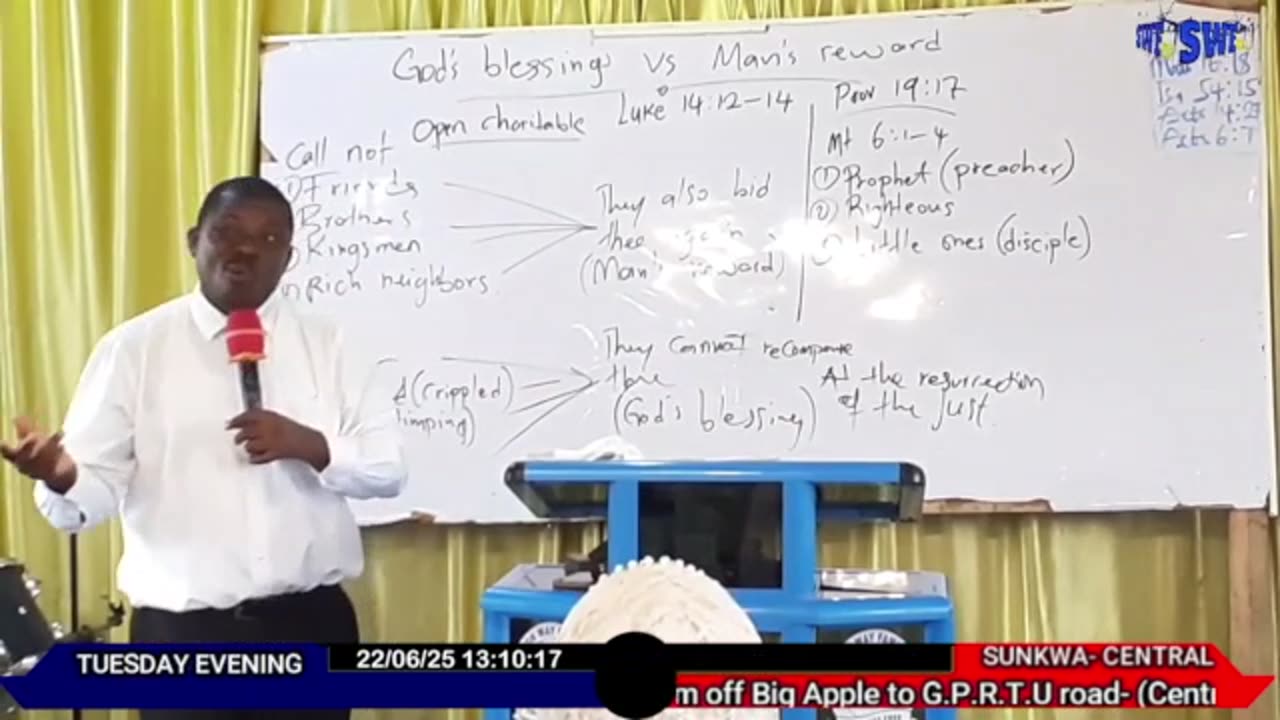 God's blessings vs Man's reward
Open charitable Luke 14:12-14
Prov 19:17
SWT
Is. 54:15
Acts 6:7
Call not
① Friends
Brothers
Kingsmen
Rich neighbors
They also bid
thee again
(Man's reward)
Mt 6:1-4
① Prophet (preacher)
② Righteous
Little ones (disciple)
(Crippled)
limping)
They cannot recompense
thee
(God's blessing)
At the resurrection
of the just
TUESDAY EVENING
22/06/25 13:10:17
SUNKWA- CENTRAL
m off Big Apple to G.P.R.T.U road- (Centr